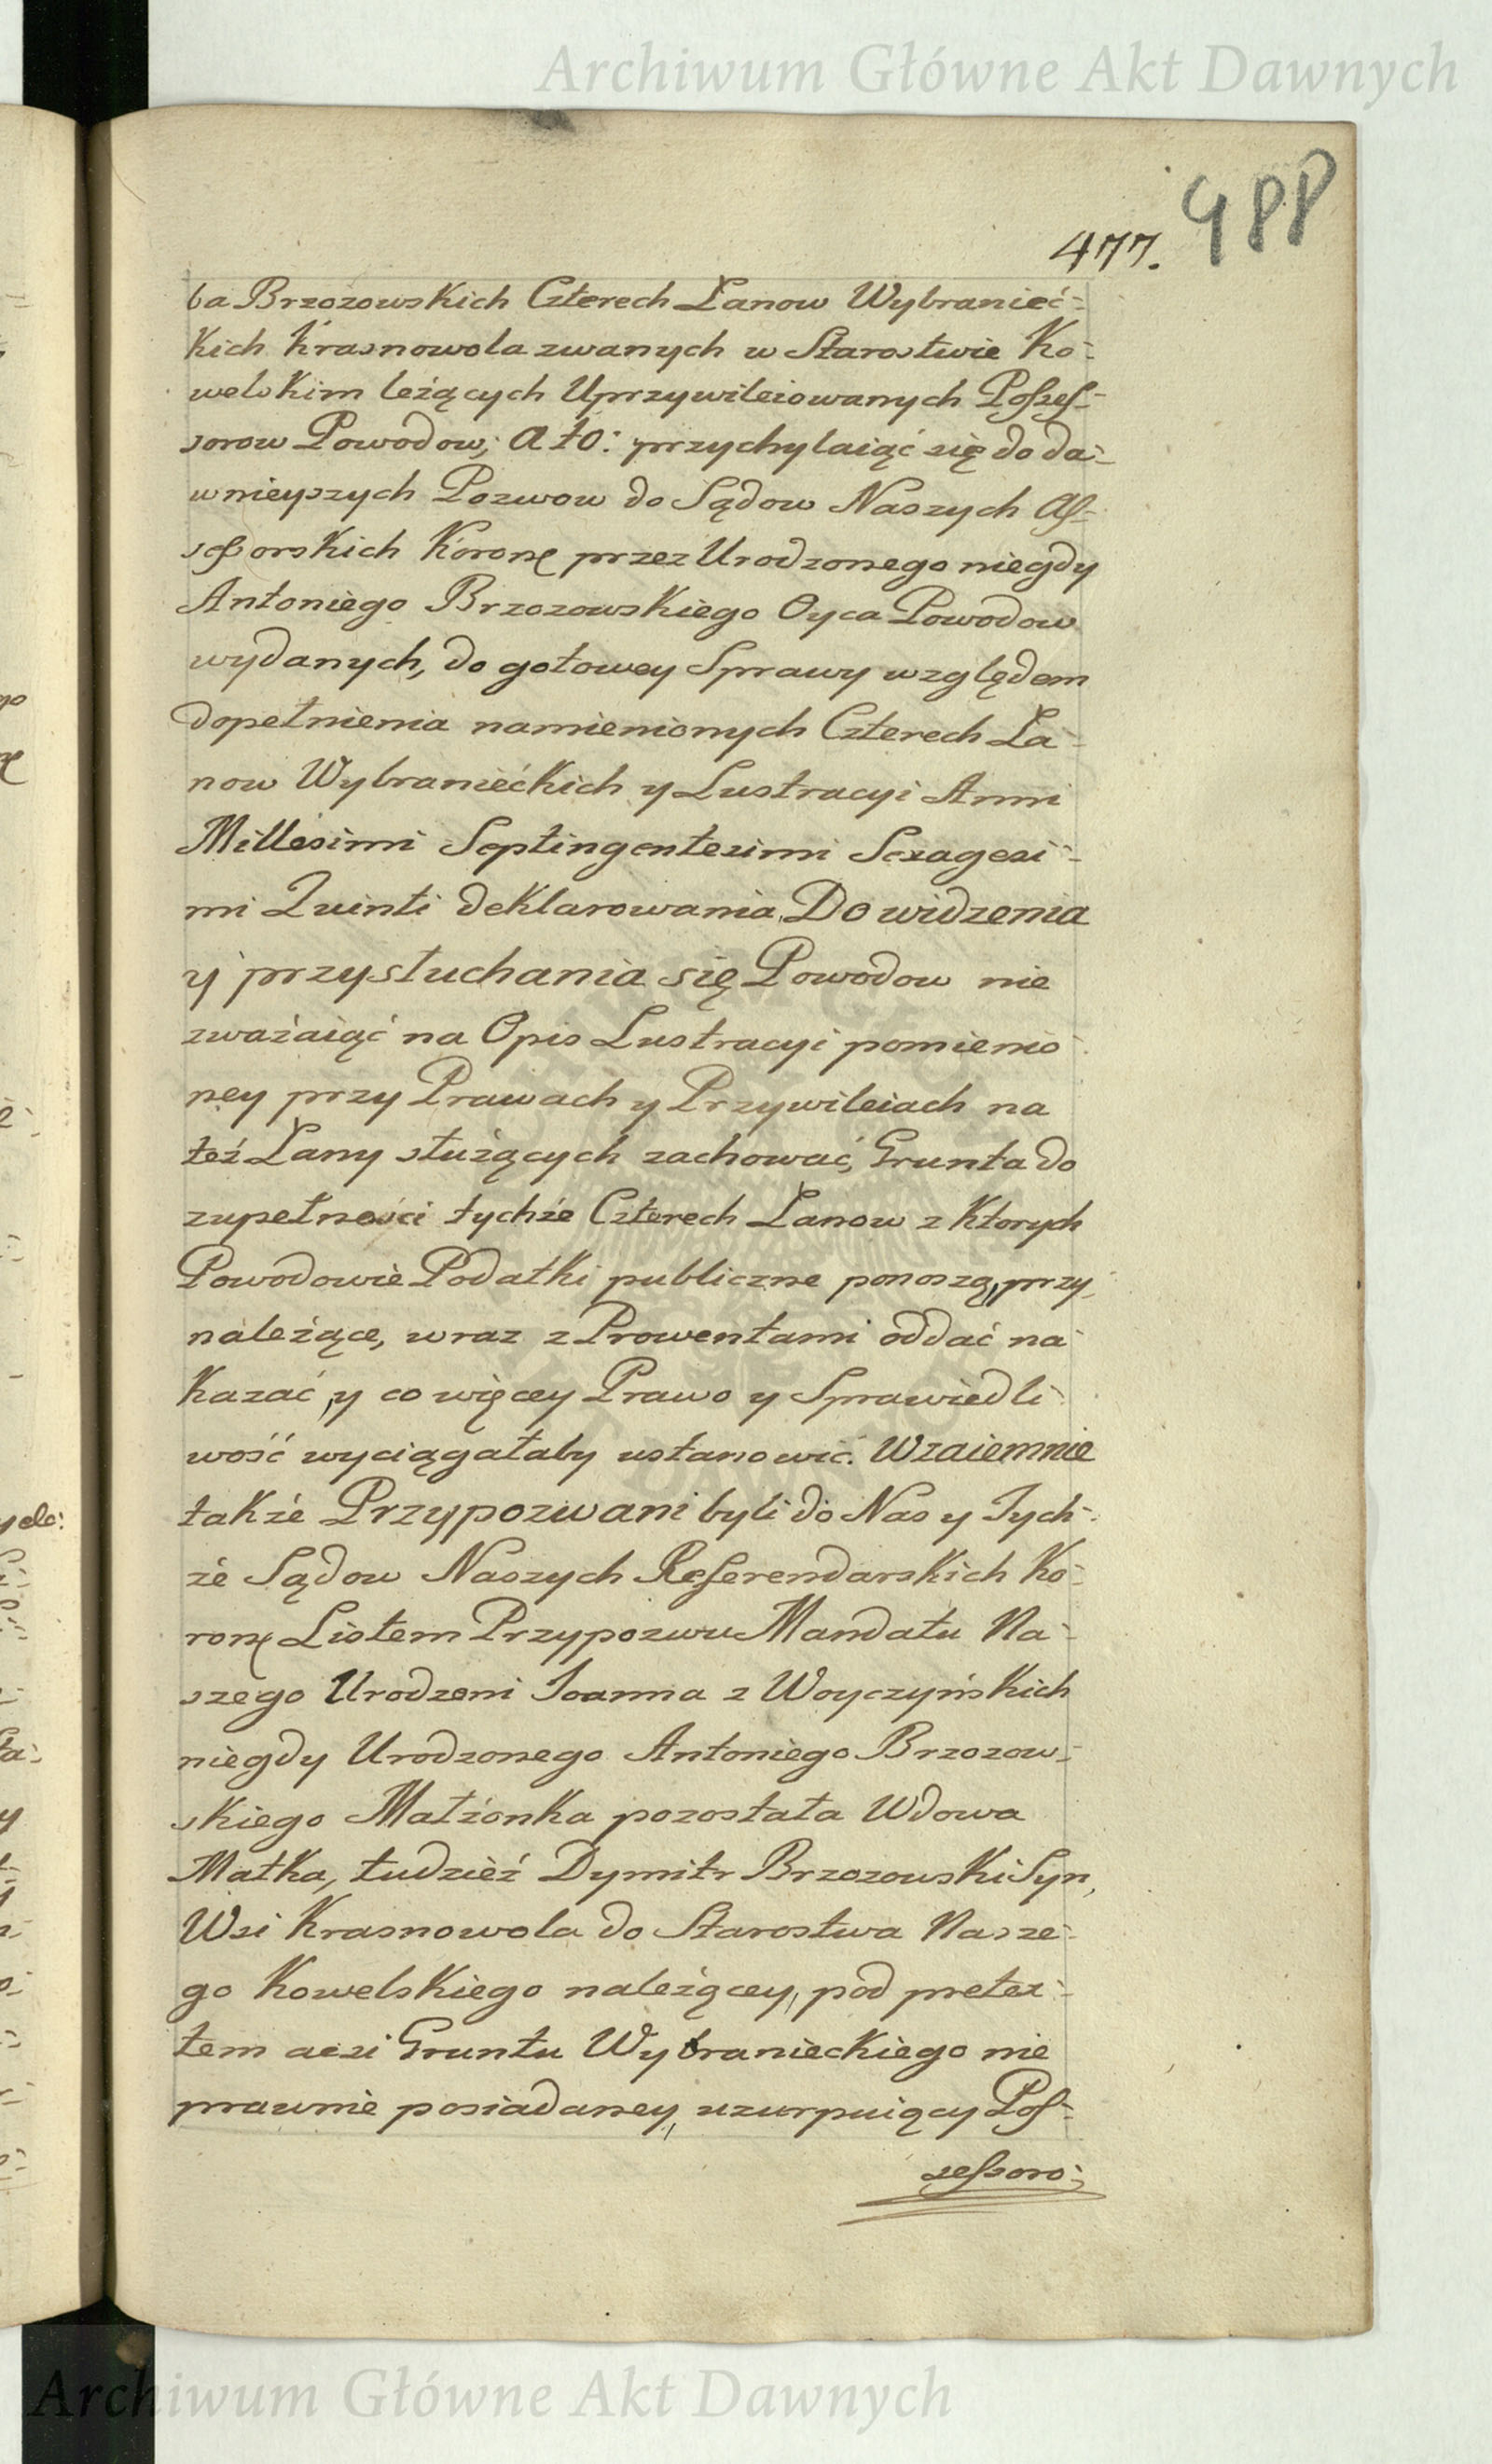 Archiwum Główne Akt Dawnych
488
477.
ba Brzozowskich Czterech Łanow Wybranieć-
kich Krasnowola zwanych w Starostwie Ko-
welskim leżących Uprzywileiowanych Possess-
sorow Powodow; a to: przychylaiąć się do da-
wnieyszych Pozwow do Sądow Naszych As-
sessorskich Koronę przez Urodzonego niegdy
Antoniego Brzozowskiego Oyca Powodow
wydanych, do gotowey Sprawy względem
dopełnienia namienionych Czterech Ła-
now Wybraniećkich y Lustracyi Anni
Millesimi Septingentesimi Sexagesi-
mi Quinti deklarowania, Do widzenia
y przysłuchania się Powodow nie
zważaiąć na Opis Lustracyi pomienio-
ney przy Prawach y Przywileiach na
też Łany służących zachować, Grunta do
zupełności tychże Czterech Łanow z ktorych
Powodowie Podatki publiczne ponoszą, przy-
należące, wraz z Prowentami oddać na-
kazać, y co więcey Prawo y Sprawiedli-
wość wyciągałaby ustanowić. Wzaiemnie
także Przypozwani byli do Nas y Tych-
że Sądow Naszych Referendarskich Ko-
ronę Listem Przypozwu Mandatu Na-
szego Urodzeni Joanna z Woyczyńskich
niegdy Urodzonego Antoniego Brzozow-
skiego Małżonka pozostała Wdowa
Matka, tudzież Dymitr Brzozowski Syn,
Wsi Krasnowola do Starostwa Nasze-
go Kowelskiego należącey, pod pretex-
tem acsi Gruntu Wybranieckiego nie
prawnie posiadaney, uzurpuiący Pos-
sessoro-
Archiwum Główne Akt Dawnych